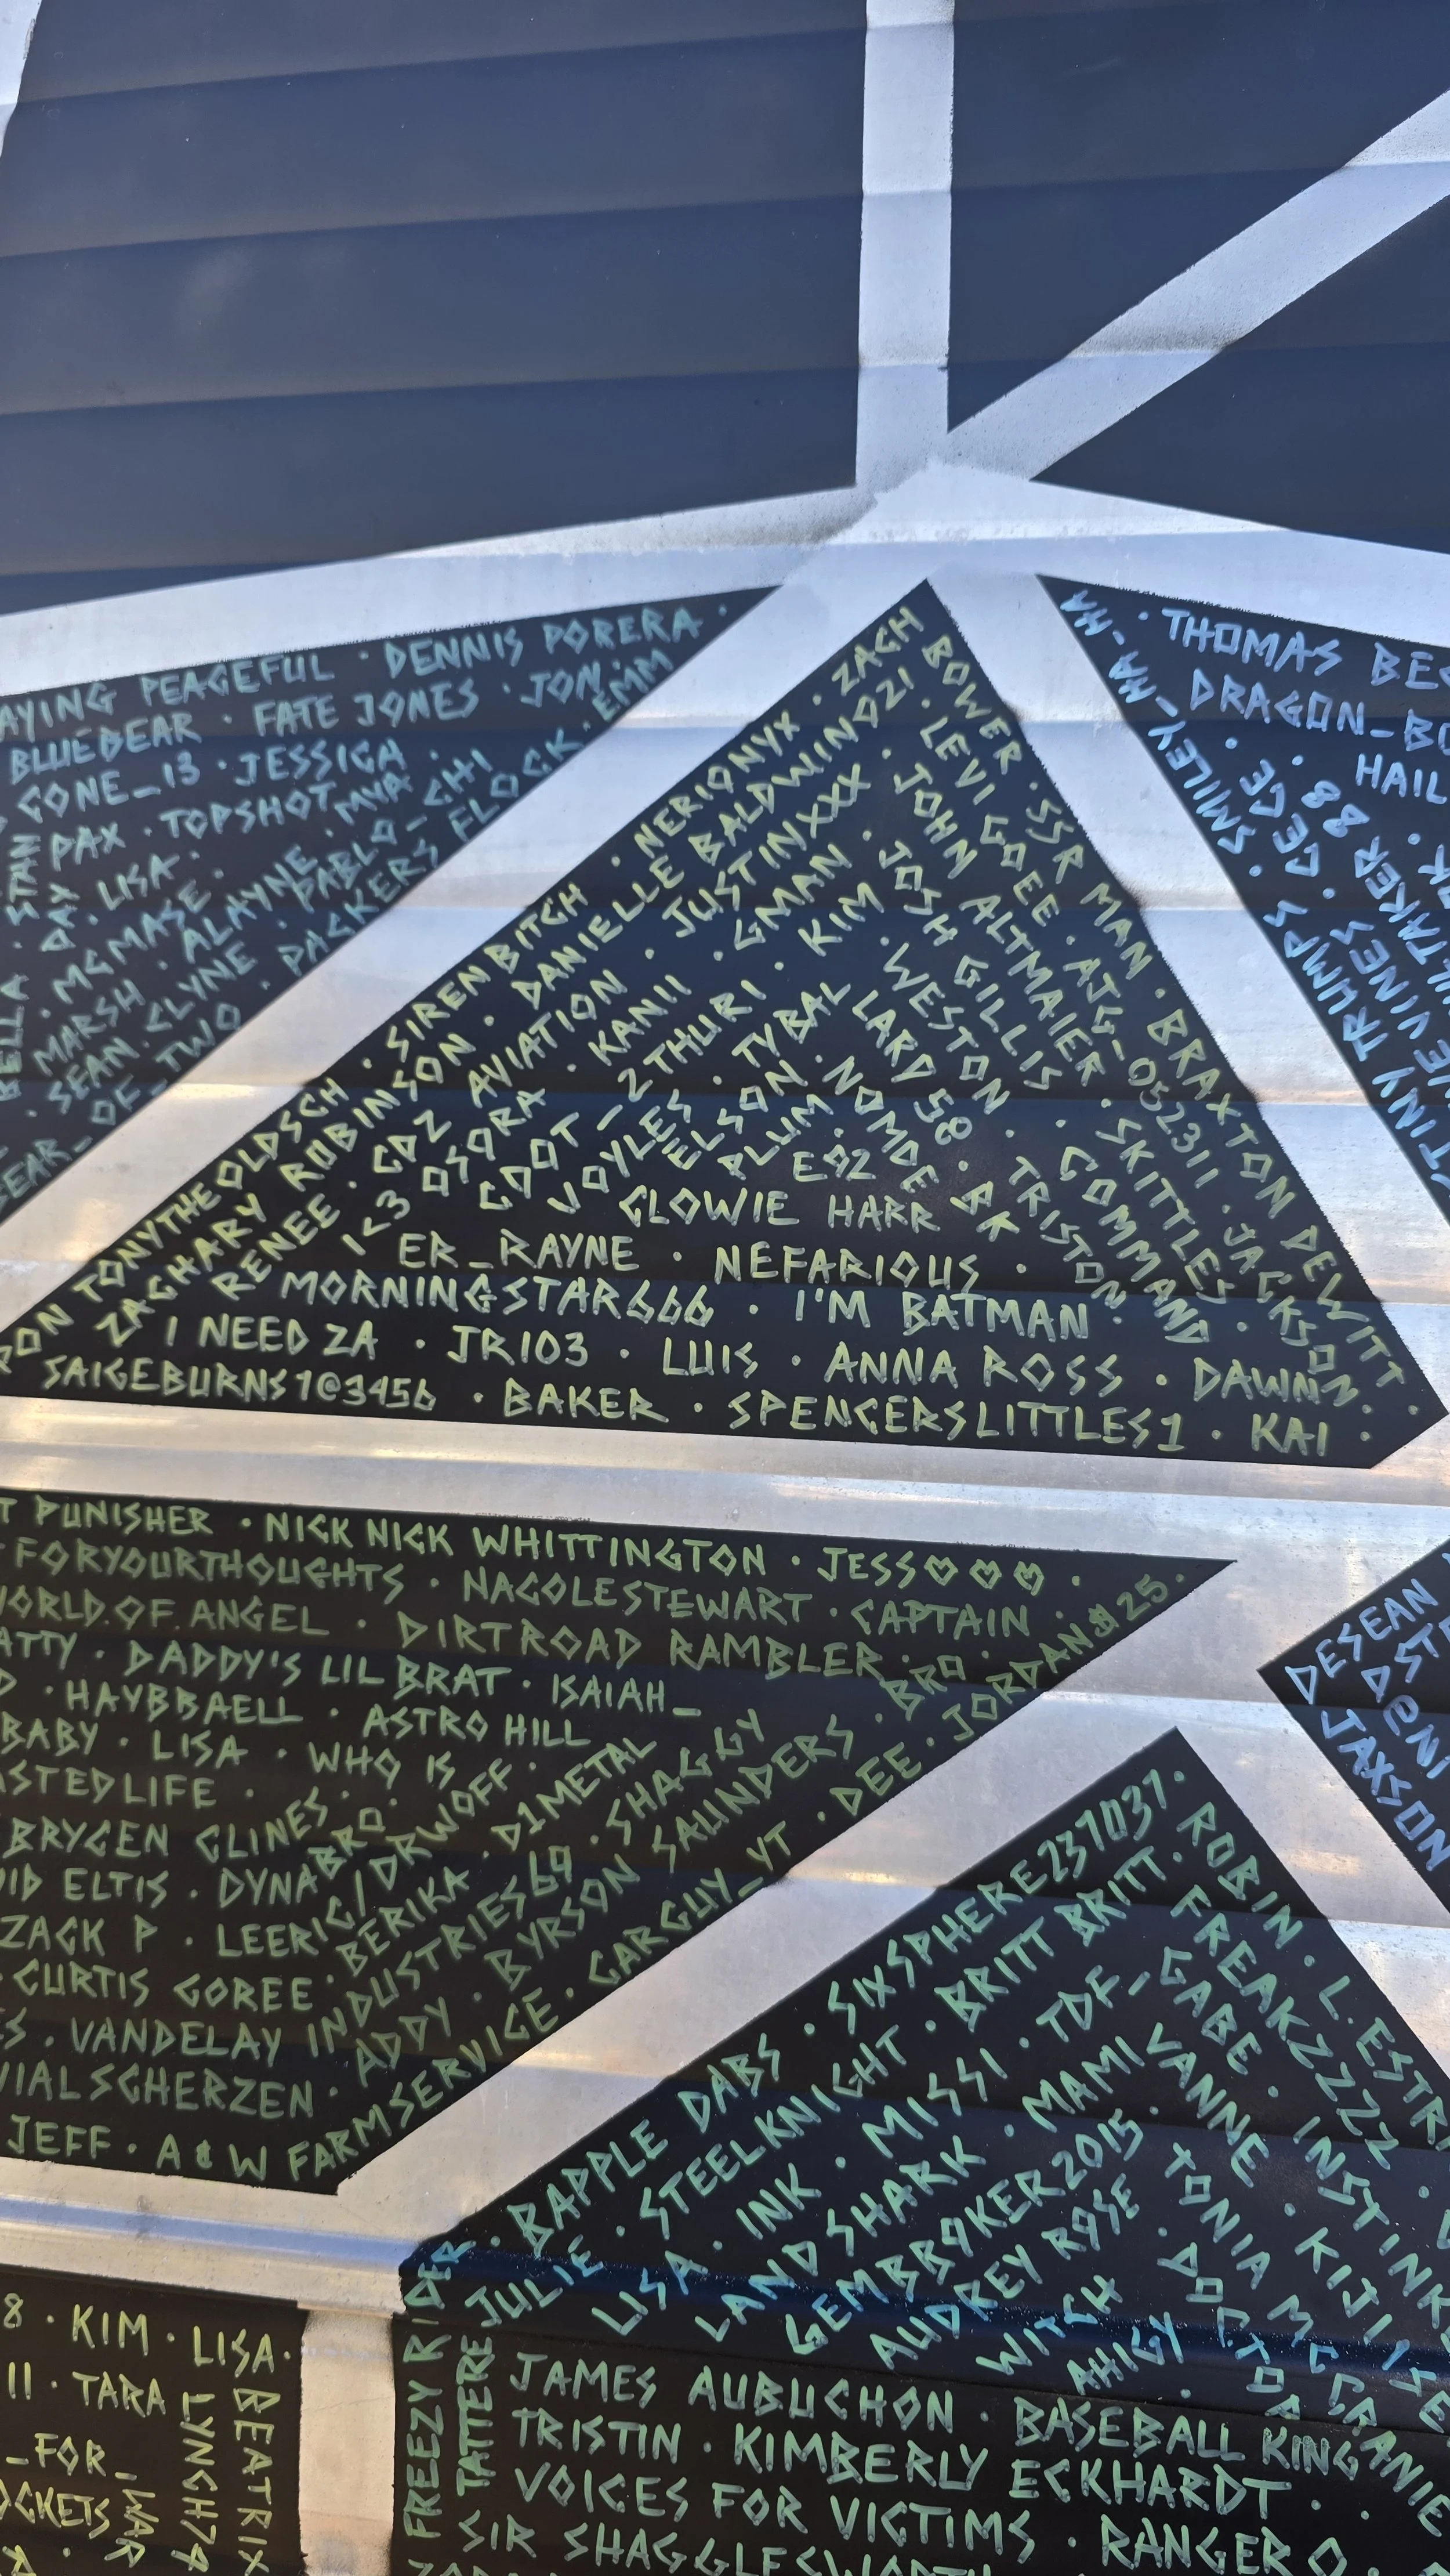 AYING PEACEFUL · DENNIS PORERA ·
BLUEBEAR · FATE JONES · JON ·
GONE_13 · JESSICA ·
STAN
DAY PAX · TOPSHOT · MYA · EMM
LISA · ALAYNE · PABLO-CHI
MCMASE ·
MARSH ·
SEAN CLYNE · PACKERS FLOCK ·
BEAR_OF_TWO ·
HA-HA-HA
· THOMAS BEC
DRAGON_BO
HAIL
· SMILEY-
CE CE ·
88 ·
TINY TRUMPS ·
VINES ·
TAKER
TONYTHEOLDSCH · SIRENBITCH · NERIONYX · ZACH
BOWER · SSR MAN · BRAXTON DEWITT ·
ZACHARY ROBINSON · DANIELLE BALDWIN021 ·
LEVI GOEE · AJG-052311 · JACKSON ·
RENEE · GDZ AVIATION · JUSTINXXX ·
JOHN ALTMAIER · SKITTLES ·
I<3 OSORA · KANII · GMAN ·
JOSH GILLIS · COMMAND
GOOT-2THURI · KIM
· WESTON · TRISTON
JOYLES · TYBAL
LARD58
NELSON · NOMDE
ALUM ·
E92
GLOWIE HARR
ER_RAYNE · NEFARIOUS ·
MORNINGSTAR666 · I'M BATMAN ·
I NEED ZA · JR103 · LUIS · ANNA ROSS · DAWN
SAIGEBURNS1@3456 · BAKER · SPENCERSLITTLES1 · KAI ·
T PUNISHER · NICK NICK WHITTINGTON · JESS♡♡♡ ·
FORYOURTHOUGHTS · NACOLESTEWART · CAPTAIN ·
WORLD.OF.ANGEL · DIRTROAD RAMBLER · BRO ·
ATTY · DADDY'S LIL BRAT · ISAIAH_
· HAYBBAELL · ASTRO HILL
BABY · LISA · WHO IS
STEDLIFE ·
BRYCEN CLINES ·
ID ELTIS · DYNABRO ·
ZACK P · LEERIC/DRWOFF ·
CURTIS GOREE · BERIKA · D1METAL
S · VANDELAY INDUSTRIES69 · SHAGGY
IALSCHERZEN · ADDY · BYRSON SAUNDERS ·
JEFF · A & W FARMSERVICE · CARGUY_YT · DEE · JORDAN$25 ·
DESEAN
JAXSON
BAPPLE DABS · SIXSPHERE237037 ·
ROBIN · L.ESTR
JULIE · STEELKNIGHT · BRITT BRITT ·
FREAKZZZZ
LISA · INK · MISSI · TDF-
GABE · INSTINK
LANDSHARK · MAMI
VANNE · KIJI
GEMBROKER2015 ·
TONIA MCCRANIE
AUDREY ROSE ·
DOCTOR
WITCH
AHIGY ·
FREEZY RIDER ·
TATTERE
JAMES AUBUCHON · BASEBALL KING
TRISTIN · KIMBERLY ECKHARDT ·
VOICES FOR VICTIMS · RANGER
SIR
8 · KIM · LISA ·
11 · TARA
LYNCH74
BEATRIX
_FOR_WAR
OCKETS